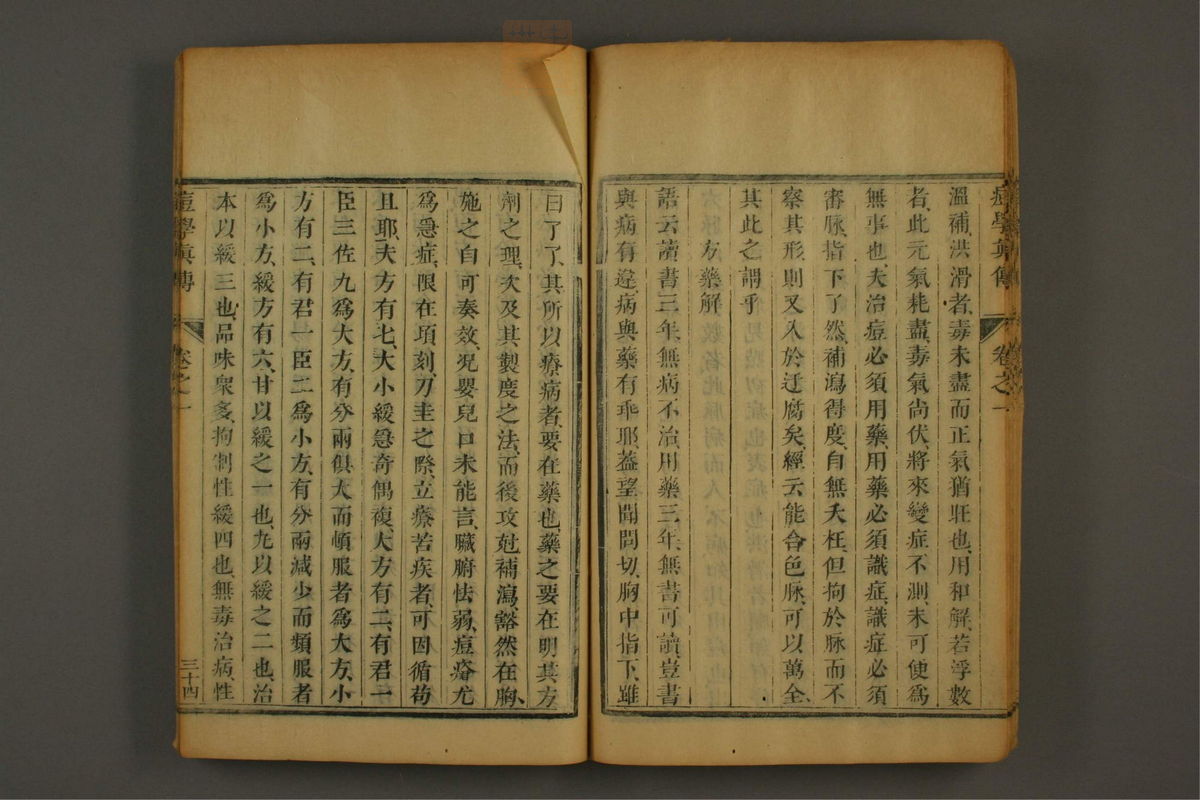 痘學真傳 卷之一
溫補、洪滑者、毒未盡而正氣猶旺也、用和解、若浮數
者、此元氣耗盡、毒氣尚伏、將來變症不測、未可便爲
無事也、夫治痘必須用藥、用藥必須識症、識症必須
審脉、指下了然、補瀉得度、自無夭枉、但拘於脉而不
察其形、則又入於迂腐矣、經云能合色脉、可以萬全、
其此之謂乎
方藥解
語云讀書三年、無病不治、用藥三年、無書可讀、豈書
與病有違、病與藥有乖耶、蓋望聞問切、胸中指下、雖
曰了了、其所以療病者、要在藥也、藥之要在明其方
劑之理、次及其製度之法、而後攻尅補瀉、豁然在胸、
施之自可奏效、况嬰兒口未能言、臟腑怯弱、痘瘄尤
爲急症、限在項刻、刀圭之際、立療苦疾者、可因循苟
且耶、夫方有七、大小緩急奇偶複、大方有二、有君一
臣三佐九爲大方、有分兩俱大而頓服者爲大方、小
方有二、有君一臣二爲小方、有分兩減少而頻服者
爲小方、緩方有六、甘以緩之一也、丸以緩之二也、治
本以緩三也、品味衆多、拘制性緩四也、無毒治病、性
痘學真傳 卷之一 三十四